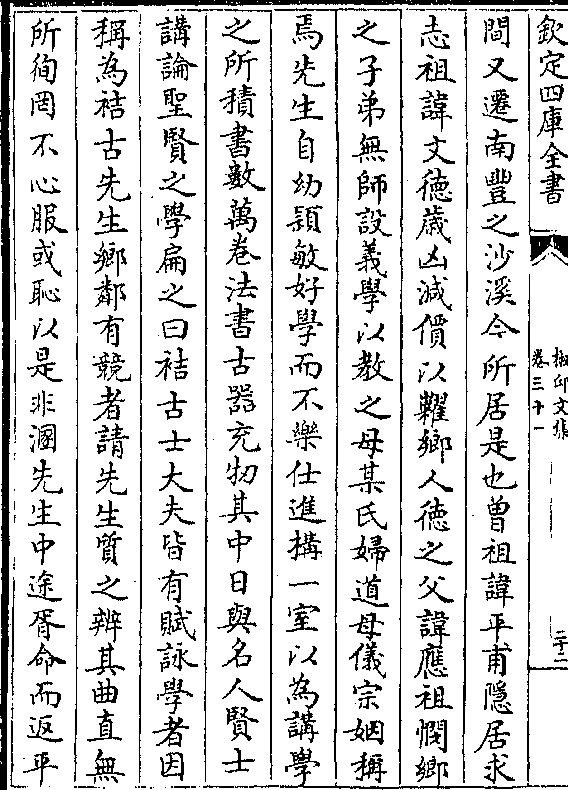 欽定四庫全書
椒邱文集
卷三十一
二十二
間又遷南豐之沙溪今所居是也曾祖諱平甫隱居求
志祖諱文徳歲凶減價以糶鄉人徳之父諱應祖憫鄉
之子弟無師設義學以教之母某氏婦道母儀宗姻稱
焉先生自幼穎敏好學而不樂仕進構一室以為講學
之所積書數萬卷法書古器充牣其中日與名人賢士
講論聖賢之學扁之曰祜古士大夫皆有賦詠學者因
稱為祜古先生鄉鄰有競者請先生質之辨其曲直無
所徇罔不心服或恥以是非溷先生中途胥命而返平